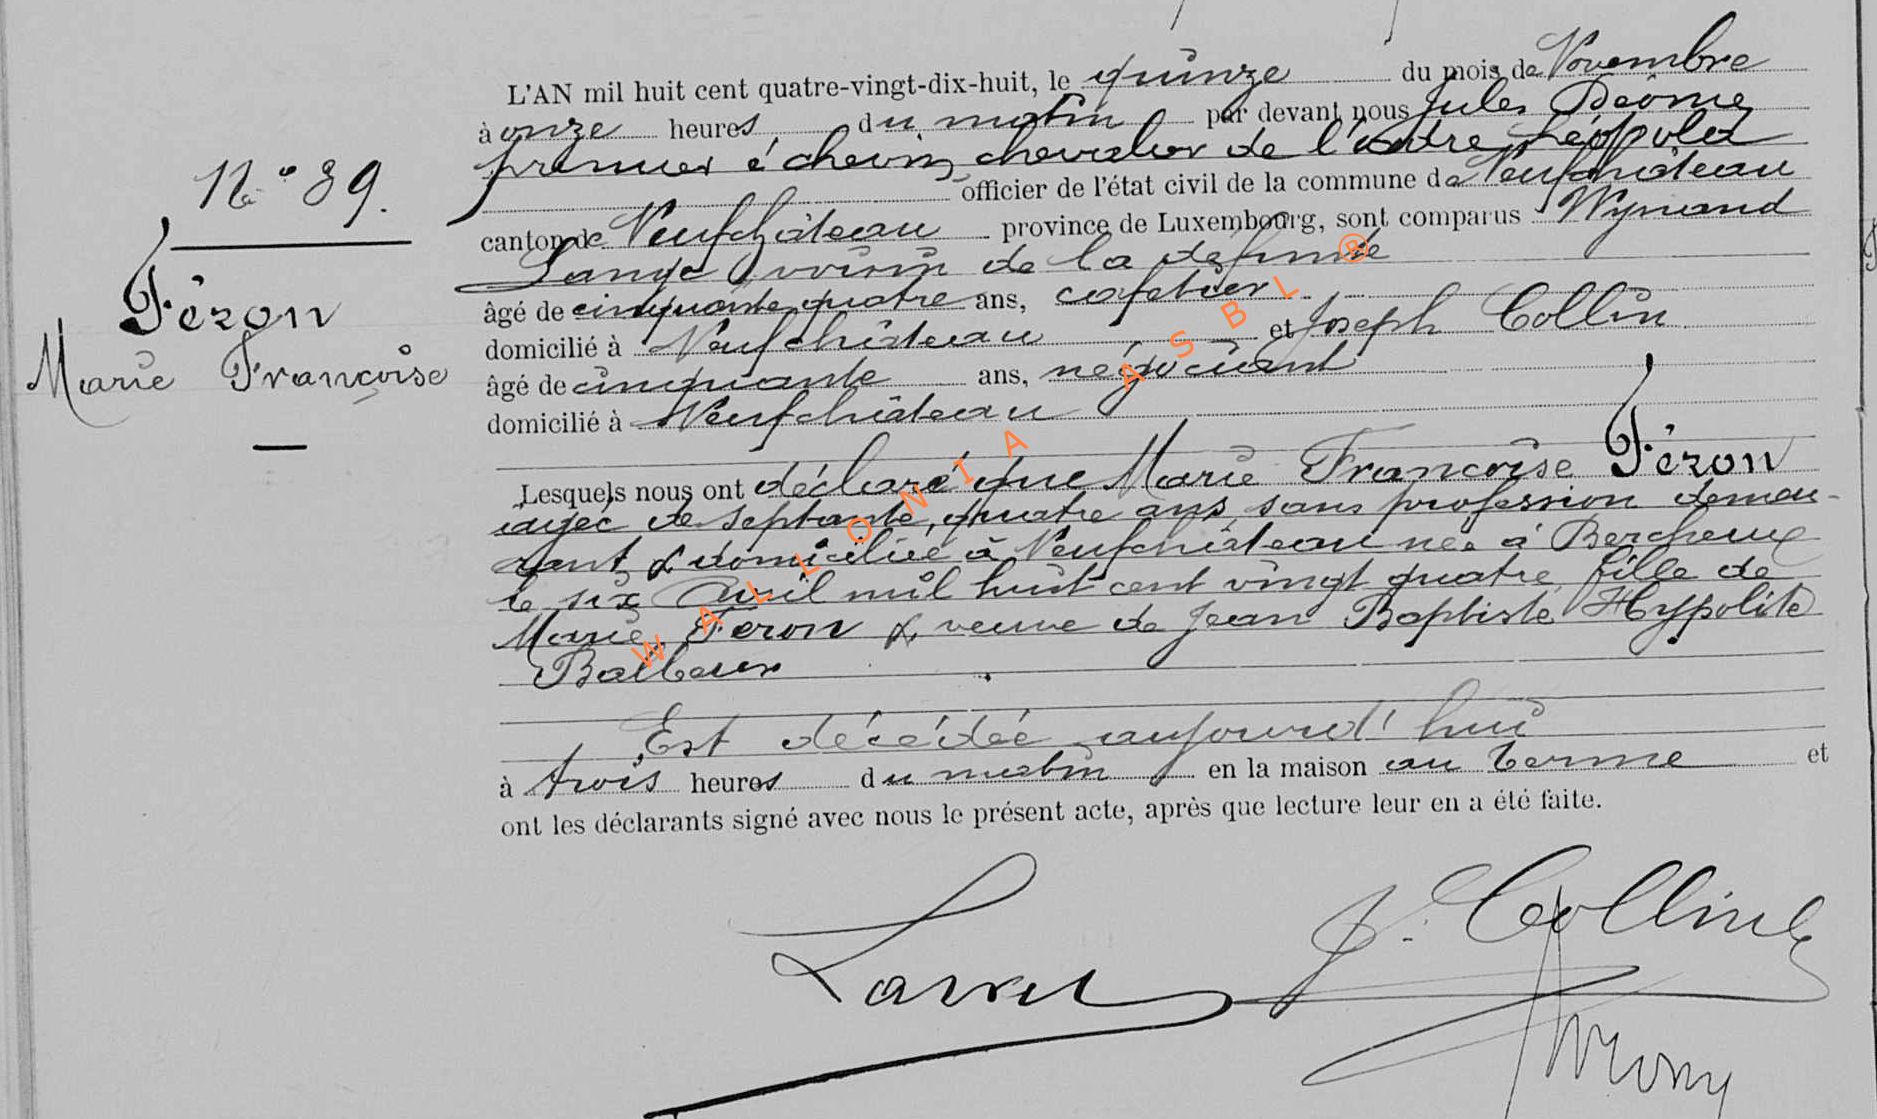 L'AN mil huit cent quatre-vingt-dix-huit, le quinze du mois de Novembre
à onze heures du matin par devant nous Jules
premier échevin, chevalier de l'ordre Léopold
officier de l'état civil de la commune de Neufchâteau
canton de Neufchâteau province de Luxembourg, sont comparus Wynand
voisin de la défunte
âgé de cinquante quatre ans, cafetier
domicilié à Neufchâteau et Joseph Collin
âgé de cinquante ans, négociant
domicilié à Neufchâteau
N° 89.
Féron
Marie Françoise
Lesquels nous ont déclaré que Marie Françoise Féron
âgée de septante quatre ans sans profession demeu-
rant & domiciliée à Neufchâteau née à Bercheux
le six Avril mil huit cent vingt quatre fille de
Marie Feron & veuve de Jean Baptiste Hypolite
Balbeur
Est décédée aujourd'hui
à trois heures du matin en la maison au Terme et
ont les déclarants signé avec nous le présent acte, après que lecture leur en a été faite.
J. Collin
WALLONIA ASBL ®